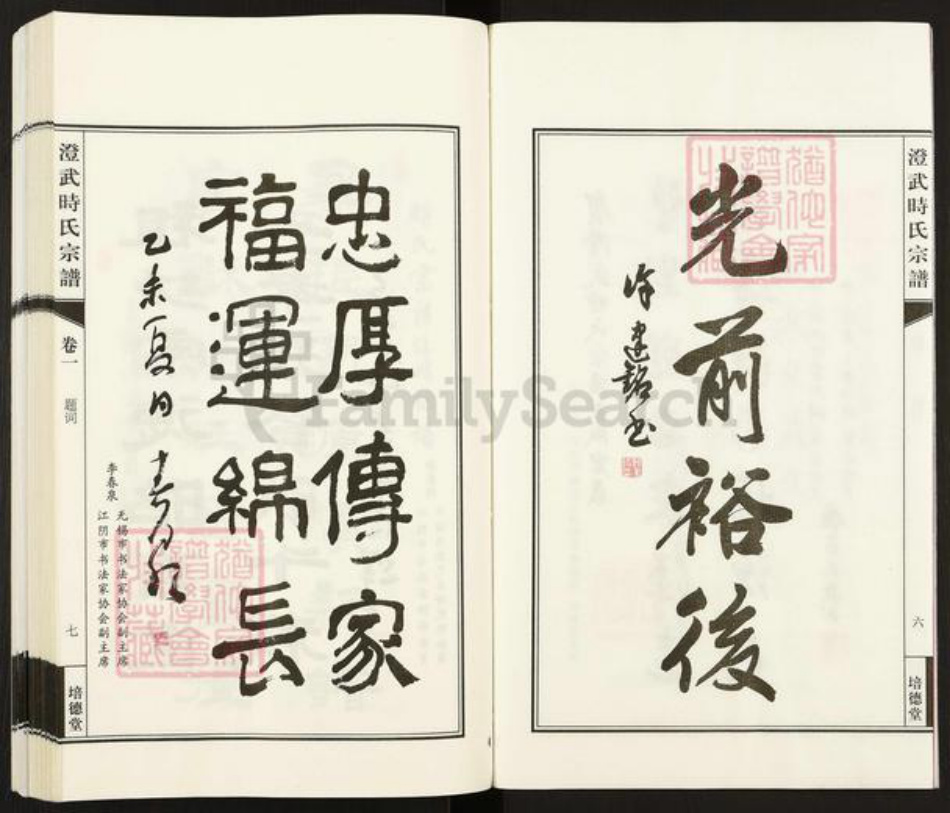 澄武時氏宗譜
六
培德堂
光前裕後
徐建銘书
忠厚傳家
福運綿長
乙未夏日
李春泉
无锡市书法家协会副主席
江阴市书法家协会副主席
澄武時氏宗譜
卷一
题词
七
培德堂
FamilySearch